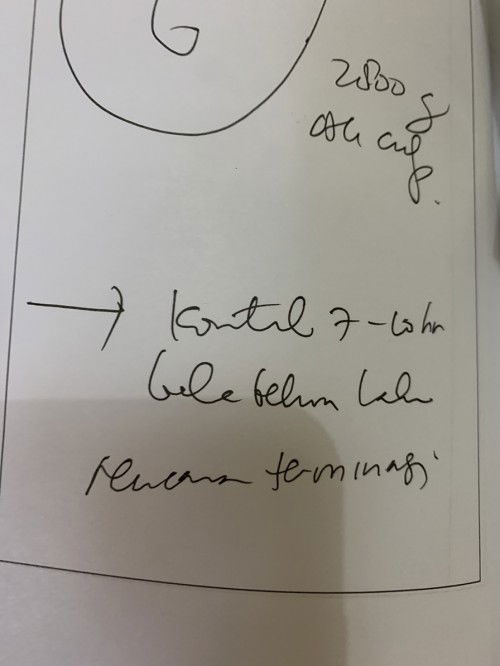 2800 g
AK cukup.
→ Kontrol 7-10 hr
bila belum lahir
rencana terminasi